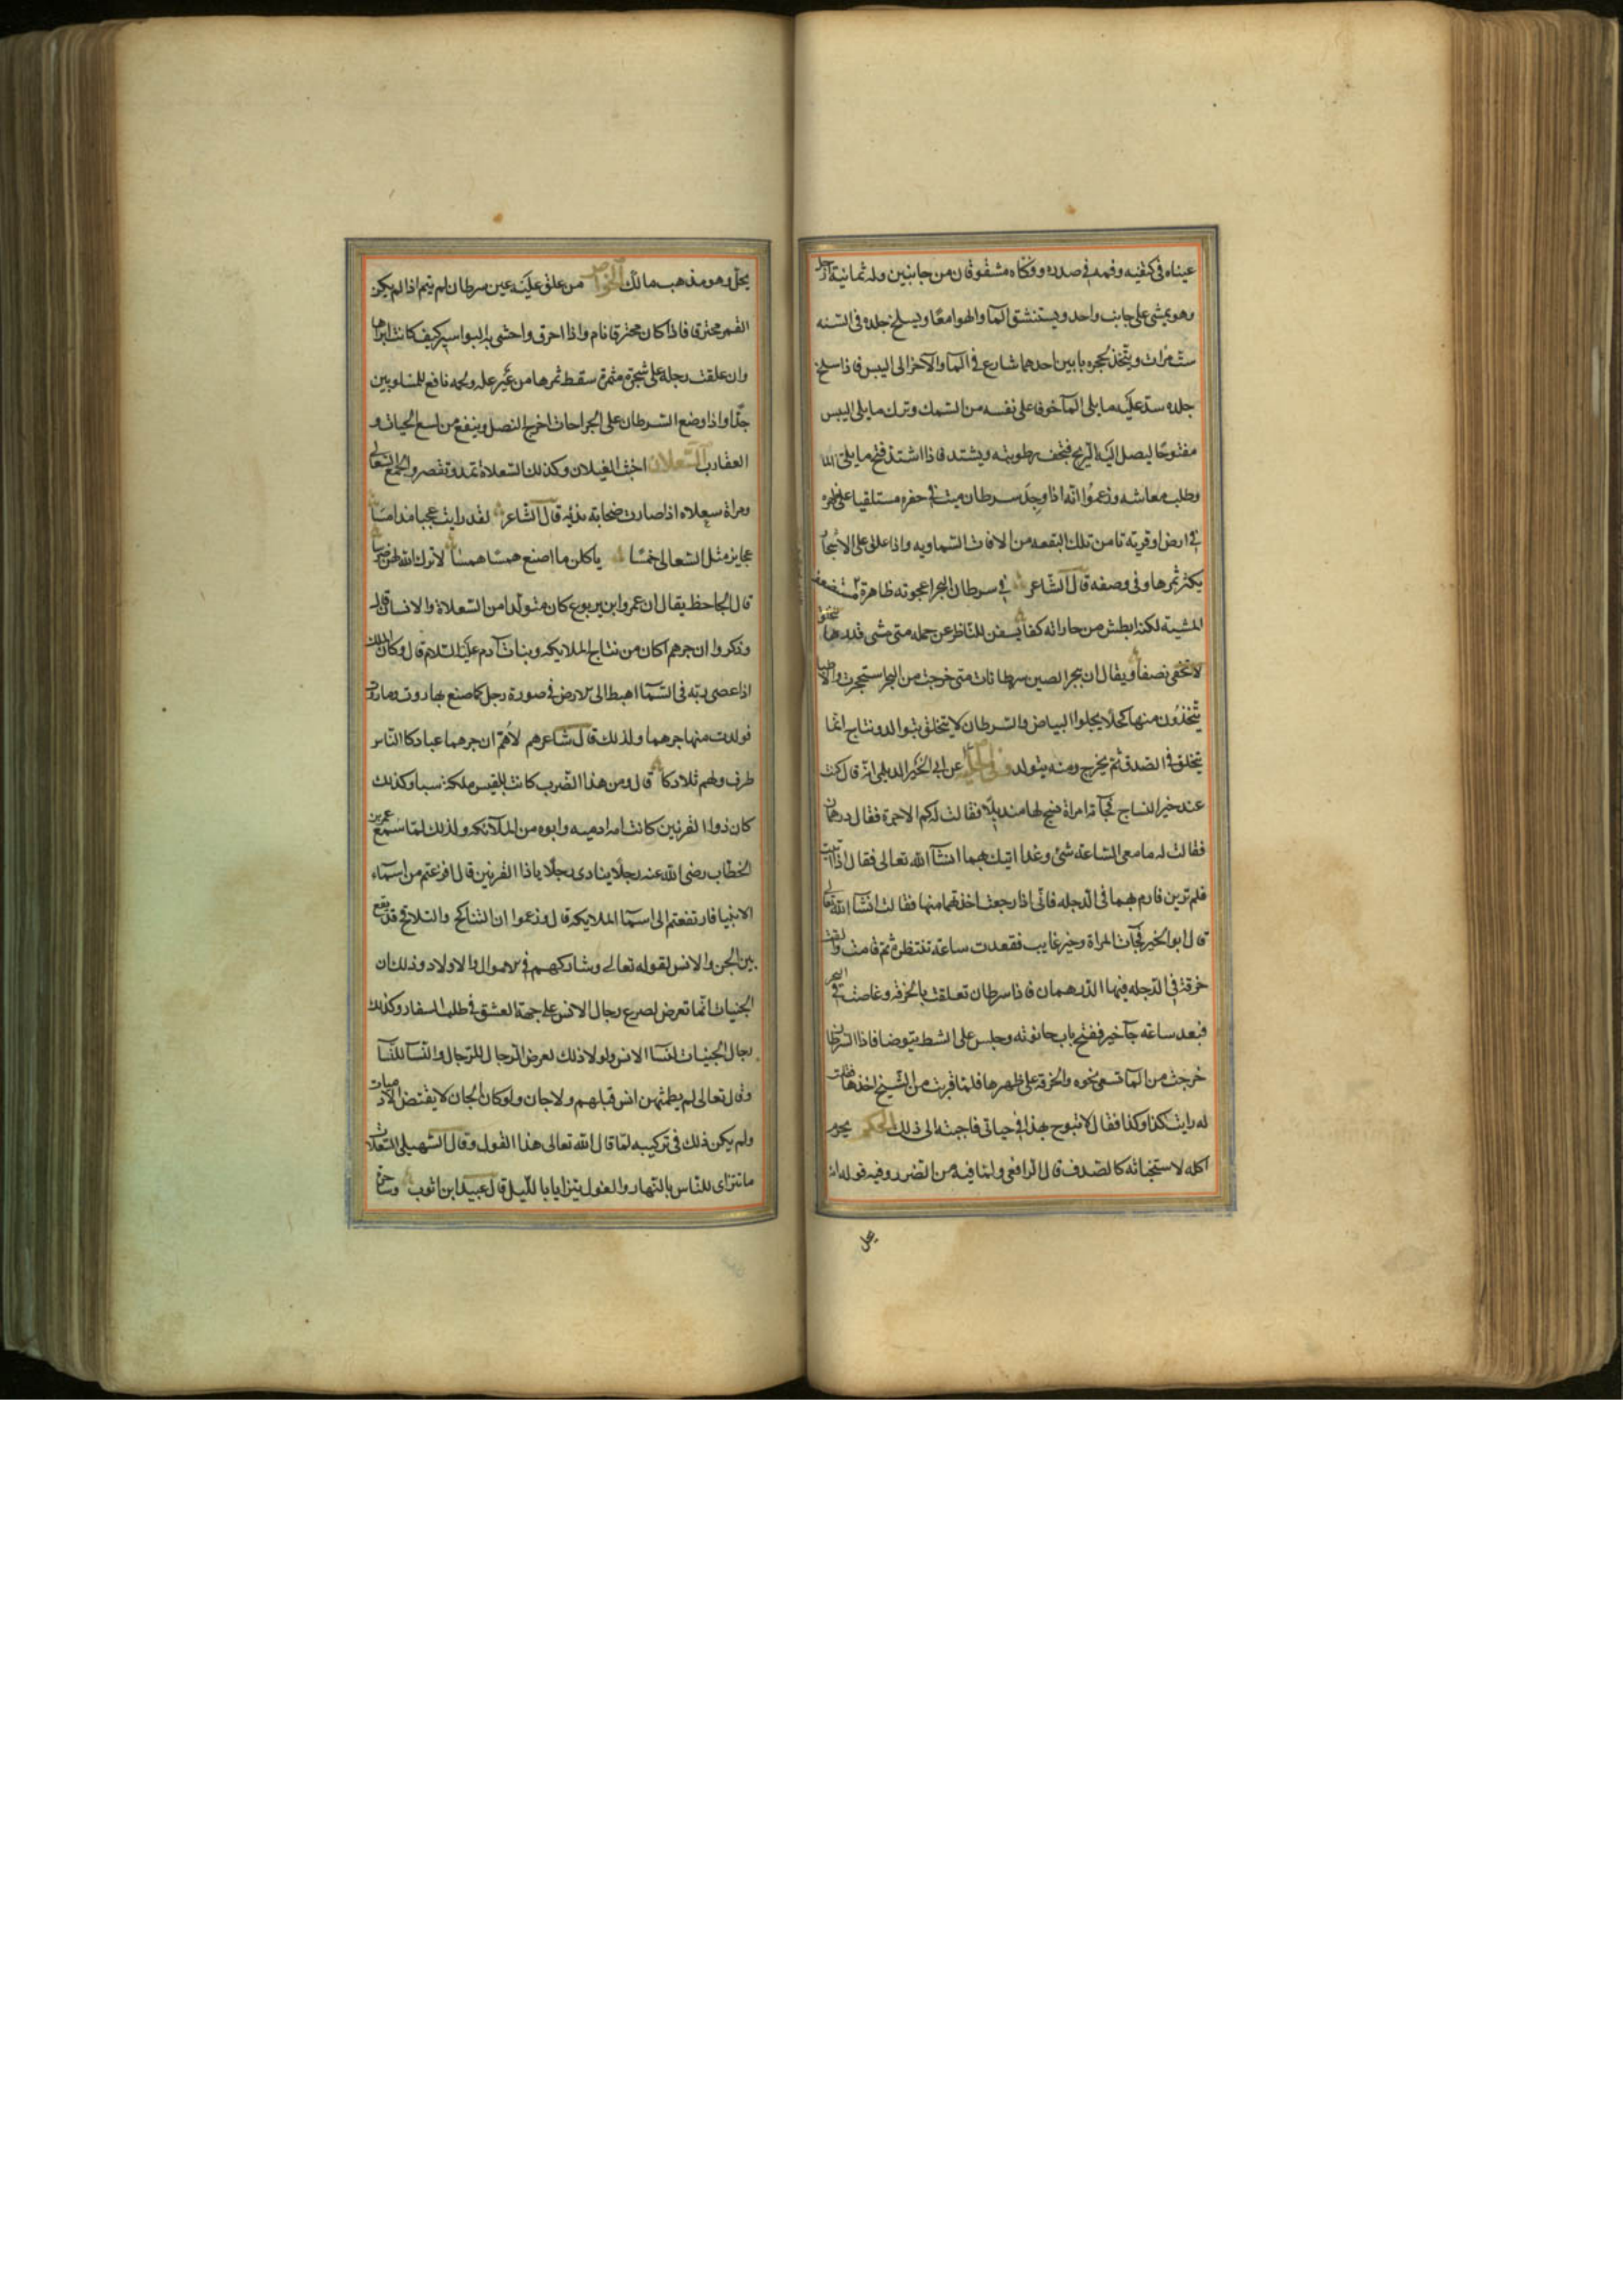 عيناه فى كتفيه وفمه فى صدره وفكاه مشقوقان من جانبين وله ثمانية ارجل
وهو يمشى على جانب واحد ويستنشق المآ والهوا معًا ويسلخ جلده فى السنه
ست مرات ويتخذ لجحره بابين احدهما شارع فى المآ والآخر الى اليبس فاذا سلخ
جلده سد عليه ما يلى المآ خوفا على نفسه من السمك وترك ما يلى اليبس
مفتوحًا ليصل اليه الريح فتجف رطوبته ويشتد فاذا اشتد فتح ما يلى الما
وطلب معاشه وزعموا انه اذا وجد سرطان ميت فى حفره مستلقيا على ظهره
فى ارض او قرية تامن تلك البقعه من الافات السماويه واذا علق على الاشجار
يكثر ثمرها وفى وصفه قال الشاعر فى سرطان البحر اعجوبه ظاهرة
المشية لكنه ابطش من جاراته كفا يسفر للناظر عن جمله متى مشى قدرها
لا تخفى نصفا ويقال ان ببحر الصين سرطانات متى خرجت من البحر استحجرت والاطبا
يتخذون منها كحلا يجلوا البياض والسرطان لا يتخلق بتوالد ونتاج انما
يتخلق فى الصدف ثم يخرج ومنه يتولد وفى الحليه عن ابى الخير الديلمى انه قال كنت
عند خير النساج فجآته امراة فنسج لها منديلا فقالت له كم الاجرة فقال درهمان
فقالت له ما معى الساعه شئ وغدا اتيك بهما انشآ الله تعالى فقال اذا اتيت
فلم ترين فارم بهما فى الدجله فانى اذا رجعت اخذتهما منها فقالت انشآ الله تعالى
قال ابو الخير فجآت المراة وخير غايب فقعدت ساعه تنتظره ثم قامت والقت
خرقة فى الدجله فيها الدرهمان فاذا سرطان تعلقت بالخرقه وغاصت فى البحر
فبعد ساعه جآ خير ففتح باب حانوته وجلس على الشط يتوضا فاذا السرطان
خرجت من المآ تسعى نحوه والخرقه على ظهرها فلما قربت من الشيخ اخذها فقلت
له رايت كذا وكذا فقال لا تبوح بهذا فى حياتى فاجبته الى ذلك الحكم يحرم
اكله لاستخباثه كالصدف قال الرافعى ولما فيه من الضرر وفيه قوله انه
يحل
يحل وهو مذهب مالك الخواص من علق عليه عين سرطان لم ينم اذا لم يكن
القمر محترقا فاذا كان محترقا نام واذا احرق واحشى به البواسير كيف كانت ابراها
وان علقت رجله على شجرة مثمرة سقط ثمرها من غير عله ولحمه نافع للمسلولين
جدًا واذا وضع السرطان على الجراحات اخرج النصل وينفع من لسع الحيات و
العقارب السعلاة اخبث الغيلان وكذلك السعلاة تمد وتقصر والجمع السعالى
ومراة سعلاه اذا صارت صخابه بذيه قال الشاعر لقد رايت عجبا مذ امسا
عجايز مثل السعالى خمسا ياكلن ما اصنع همسا همسا لا ترك الله لهن ضرسا
قال الجاحظ يقال ان عمرو ابن يربوع كان متولدا من السعلاة والانسان قال
وذكروا ان جرهم اكان من نتاج الملايكه وبنات آدم عليه السلام قال وكان الملك
اذا عصى ربه فى السمآ اهبط الى الارض فى صورة رجل كما صنع بهاروت وماروت
فولدت منها جرهما ولذلك قال شاعرهم لاهم ان جرهما عبادكا الناس
طرف وهم تلادكا قال ومن هذا الضرب كانت بلقيس ملكة سبا وكذلك
كان ذوا القرنين كانت امه ادميه وابوه من الملآئكه ولذلك لما سمع عمر بن
الخطاب رضى الله عنه رجلًا ينادى رجلًا ياذا القرنين قال افرغتم من اسمآء
الانبيا فارتفعتم الى اسمآ الملايكه قال وزعموا ان التناكح والتلاقح قد يقع
بين الجن والانس لقوله تعالى وشاركهم فى الاموال والاولاد وذلك ان
الجنيات انما تعرض لصرع رجال الانس على جهة العشق فى طلب السفاد وكذلك
رجال الجنيات لنسا الانس ولولا ذلك لعرض الرجال للرجال والنسآ للنسآ
وقال تعالى لم يطمثهن انس قبلهم ولا جان ولو كان الجان لا يفتض الادميات
ولم يكن ذلك فى تركيبه لما قال الله تعالى هذا القول وقال السهيلى السعلاة
ما تترآى للناس بالنهار والغول يتزايا بالليل قال عبيد ابن ايوب وساحرة